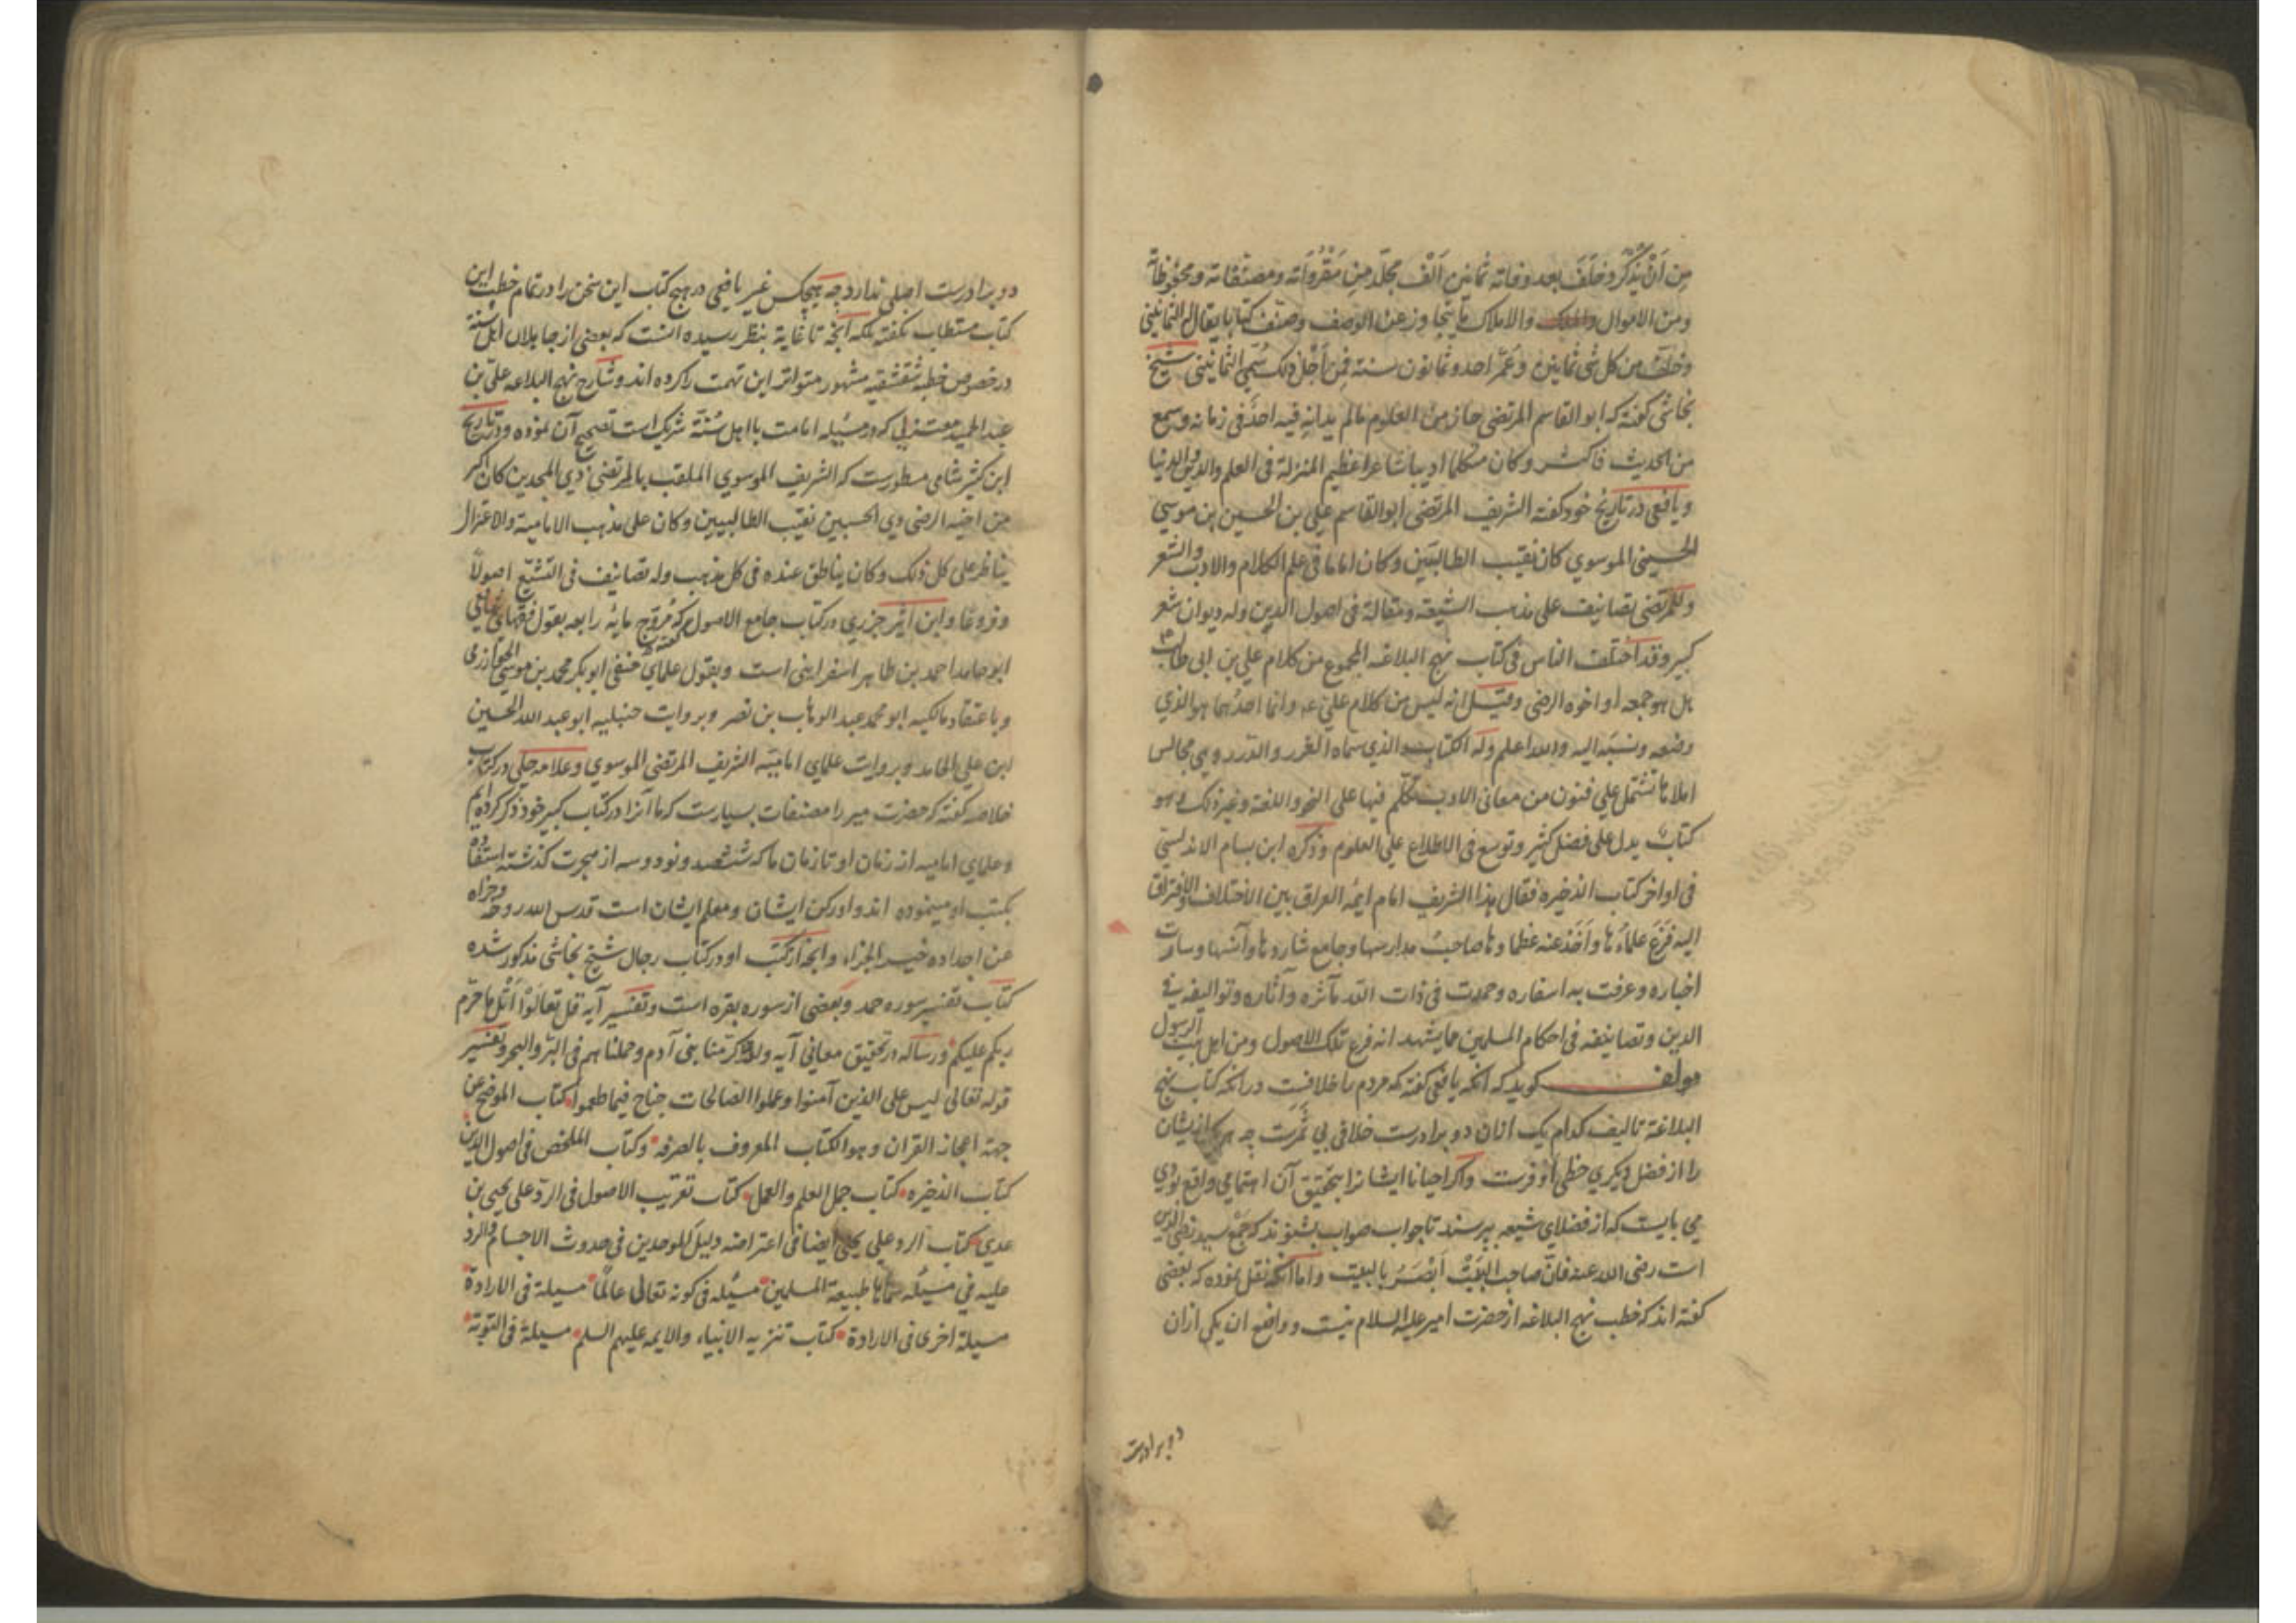 من ان يذكر وخلف بعد وفاته ثمانين الف مجلد من مقرواته ومصنفاته ومحفوظاته
ومن الاموال والاملاك ما يتجاوز عن الوصف وصنف كتابا يقال له الثمانيني
وخلف من كل شی ثمانين وعمر احد وثمانون سنة فمن اجل ذلك سمی الثمانينی شیخ
نجاشی کفته که ابو القاسم المرتضی حاز من العلوم مالم يدانه فيه احد فی زمانه وسمع
من الحديث فاكثر وكان متكلما اديبا شاعرا عظيم المنزلة فی العلم والدين والدنيا
ويافعی در تاریخ خود کفته الشريف المرتضی ابوالقاسم علی بن الحسين بن موسی
الحسينی الموسوي كان نقيب الطالبيين وكان اماما فی علم الكلام والادب والشعر
وللمرتضی تصانيف علی مذهب الشيعة ومقالة فی اصول الدين وله ديوان شعر
كبير وقد اختلف الناس فی كتاب نهج البلاغه المجموع من كلام علی بن ابی طالب
هل هو جمعه او اخوه الرضی وقيل انه ليس من كلام علی وانما احدهما هو الذي
وضعه ونسبه اليه والله اعلم وله الكتاب الذي سماه الغرر والدرر وهی مجالس
املاها تشتمل علی فنون من معانی الادب تكلم فيها علی النحو واللغة وغير ذلك وهو
كتاب يدل علی فضل كثير وتوسع فی الاطلاع علی العلوم وذكره ابن بسام الاندلسی
فی اواخر كتاب الذخيره فقال هذا الشريف امام ايمه العراق بين الاختلاف والافتراق
اليه فزع علماءها واخذ عنه عظماءها صاحب مدارسها وجامع شاردها وآنسها وسارت
اخباره وعرفت به اسفاره وحمدت فی ذات الله مآثره وآثاره وتواليفه فی
الدين وتصانيفه فی احكام المسلمين مما يشهد انه فرع تلك الاصول ومن اهل بيت الرسول
مولف کوید که آنکه یافعی کفته که مردم را خلافست در انکه کتاب نهج
البلاغة تالیف کدام یک ازان دو برادرست خلافی بی ثمرت چه هر یک از ایشان
را از فضل دیکری حظی اوفرست واکر احیانا ایشانرا بتحقیق آن اهتمامی واقع بودی
می بایست که از فضلای شیعه بپرسند تا جواب صواب بشنوند که جمع سید رضی الدین
است رضی الله عنه فان صاحب البیت ابصر بالبیت واما آنکه نقل نموده که بعضی
کفته اند که خطب نهج البلاغه از حضرت امیر علیه السلام نیست وواضع ان یکی ازان
دو برادرست
دو برادرست اصلی ندارد چه هیچکس غیر یافعی در هیچ کتاب این سخن را در تمام خطب این
کتاب مستطاب نکفته بلکه آنچه تا غایة بنظر رسیده انست که بعضی از جاهلان اهل سنة
در خصوص خطبه شقشقیه مشهور متواتر این تهمت را کرده اند وشارح نهج البلاغه علی بن
عبد الحمید معتزلی که در مسئله امامت با اهل سنة شریک است تصحیح آن نموده ودر تاریخ
ابن کثیر شامی مسطورست که الشريف الموسوي الملقب بالمرتضی ذي المجدين كان اكبر
من اخيه الرضی ذي الحسبين نقيب الطالبيين وكان علی مذهب الامامية والاعتزال
يناظر علی كل ذلك وكان يناظر عنده فی كل مذهب وله تصانيف فی التشيع اصولا
وفروعا وابن اثير جزري در کتاب جامع الاصول کفته که مروج مایه رابعه بقول فقهای شافعی
ابو حامد احمد بن طاهر اسفراینی است وبقول علمای حنفی ابو بکر محمد بن موسی الخوارزمی
وباعتقاد مالکیه ابو محمد عبد الوهاب بن نصر وبروایت حنبلیه ابو عبد الله الحسین
ابن علی الحامد وبروایت علمای امامیه الشریف المرتضی الموسوي وعلامه حلی در کتاب
خلاصه کفته که حضرت میر را مصنفات بسیارست که ما آنرا در کتاب کبیر خود ذکر کرده ایم
وعلمای امامیه از زمان او تا زمان ما که ششصد ونود وسه از هجرت کذشته استفاده
بکتب او مینموده اند واو رکن ایشان ومعلم ایشان است قدس الله روحه وجزاه
عن اجداده خیر الجزاء وانچه از کتب او در کتاب رجال شیخ نجاشی مذکور شده
کتاب تفسیر سوره حمد وبعضی از سوره بقره است وتفسیر آیه قل تعالوا اتل ما حرم
ربکم علیکم ورساله در تحقیق معانی آیه ولقد کرمنا بنی آدم وحملناهم فی البر والبحر وتفسیر
قوله تعالی لیس علی الذین آمنوا وعملوا الصالحات جناح فیما طعموا کتاب الموضح عن
جهة اعجاز القران وهو الکتاب المعروف بالصرفه وکتاب الملخص فی اصول الدین
کتاب الذخیره کتاب جمل العلم والعمل کتاب تقریب الاصول فی الرد علی یحیی بن
عدی کتاب الرد علی یحیی ایضا فی اعتراضه دلیل الموحدین فی حدوث الاجسام والرد
علیه فی مسئله سماها طبیعة المسلمین مسئله فی کونه تعالی عالما مسیلة فی الارادة
مسیلة اخری فی الارادة کتاب تنزیه الانبیاء والایمه علیهم السلم مسیلة فی التوبة